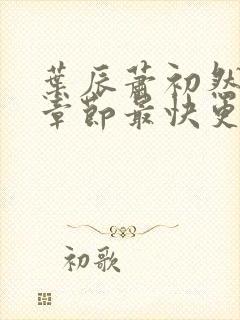 葉辰蕭初然
章節最快更
初歌